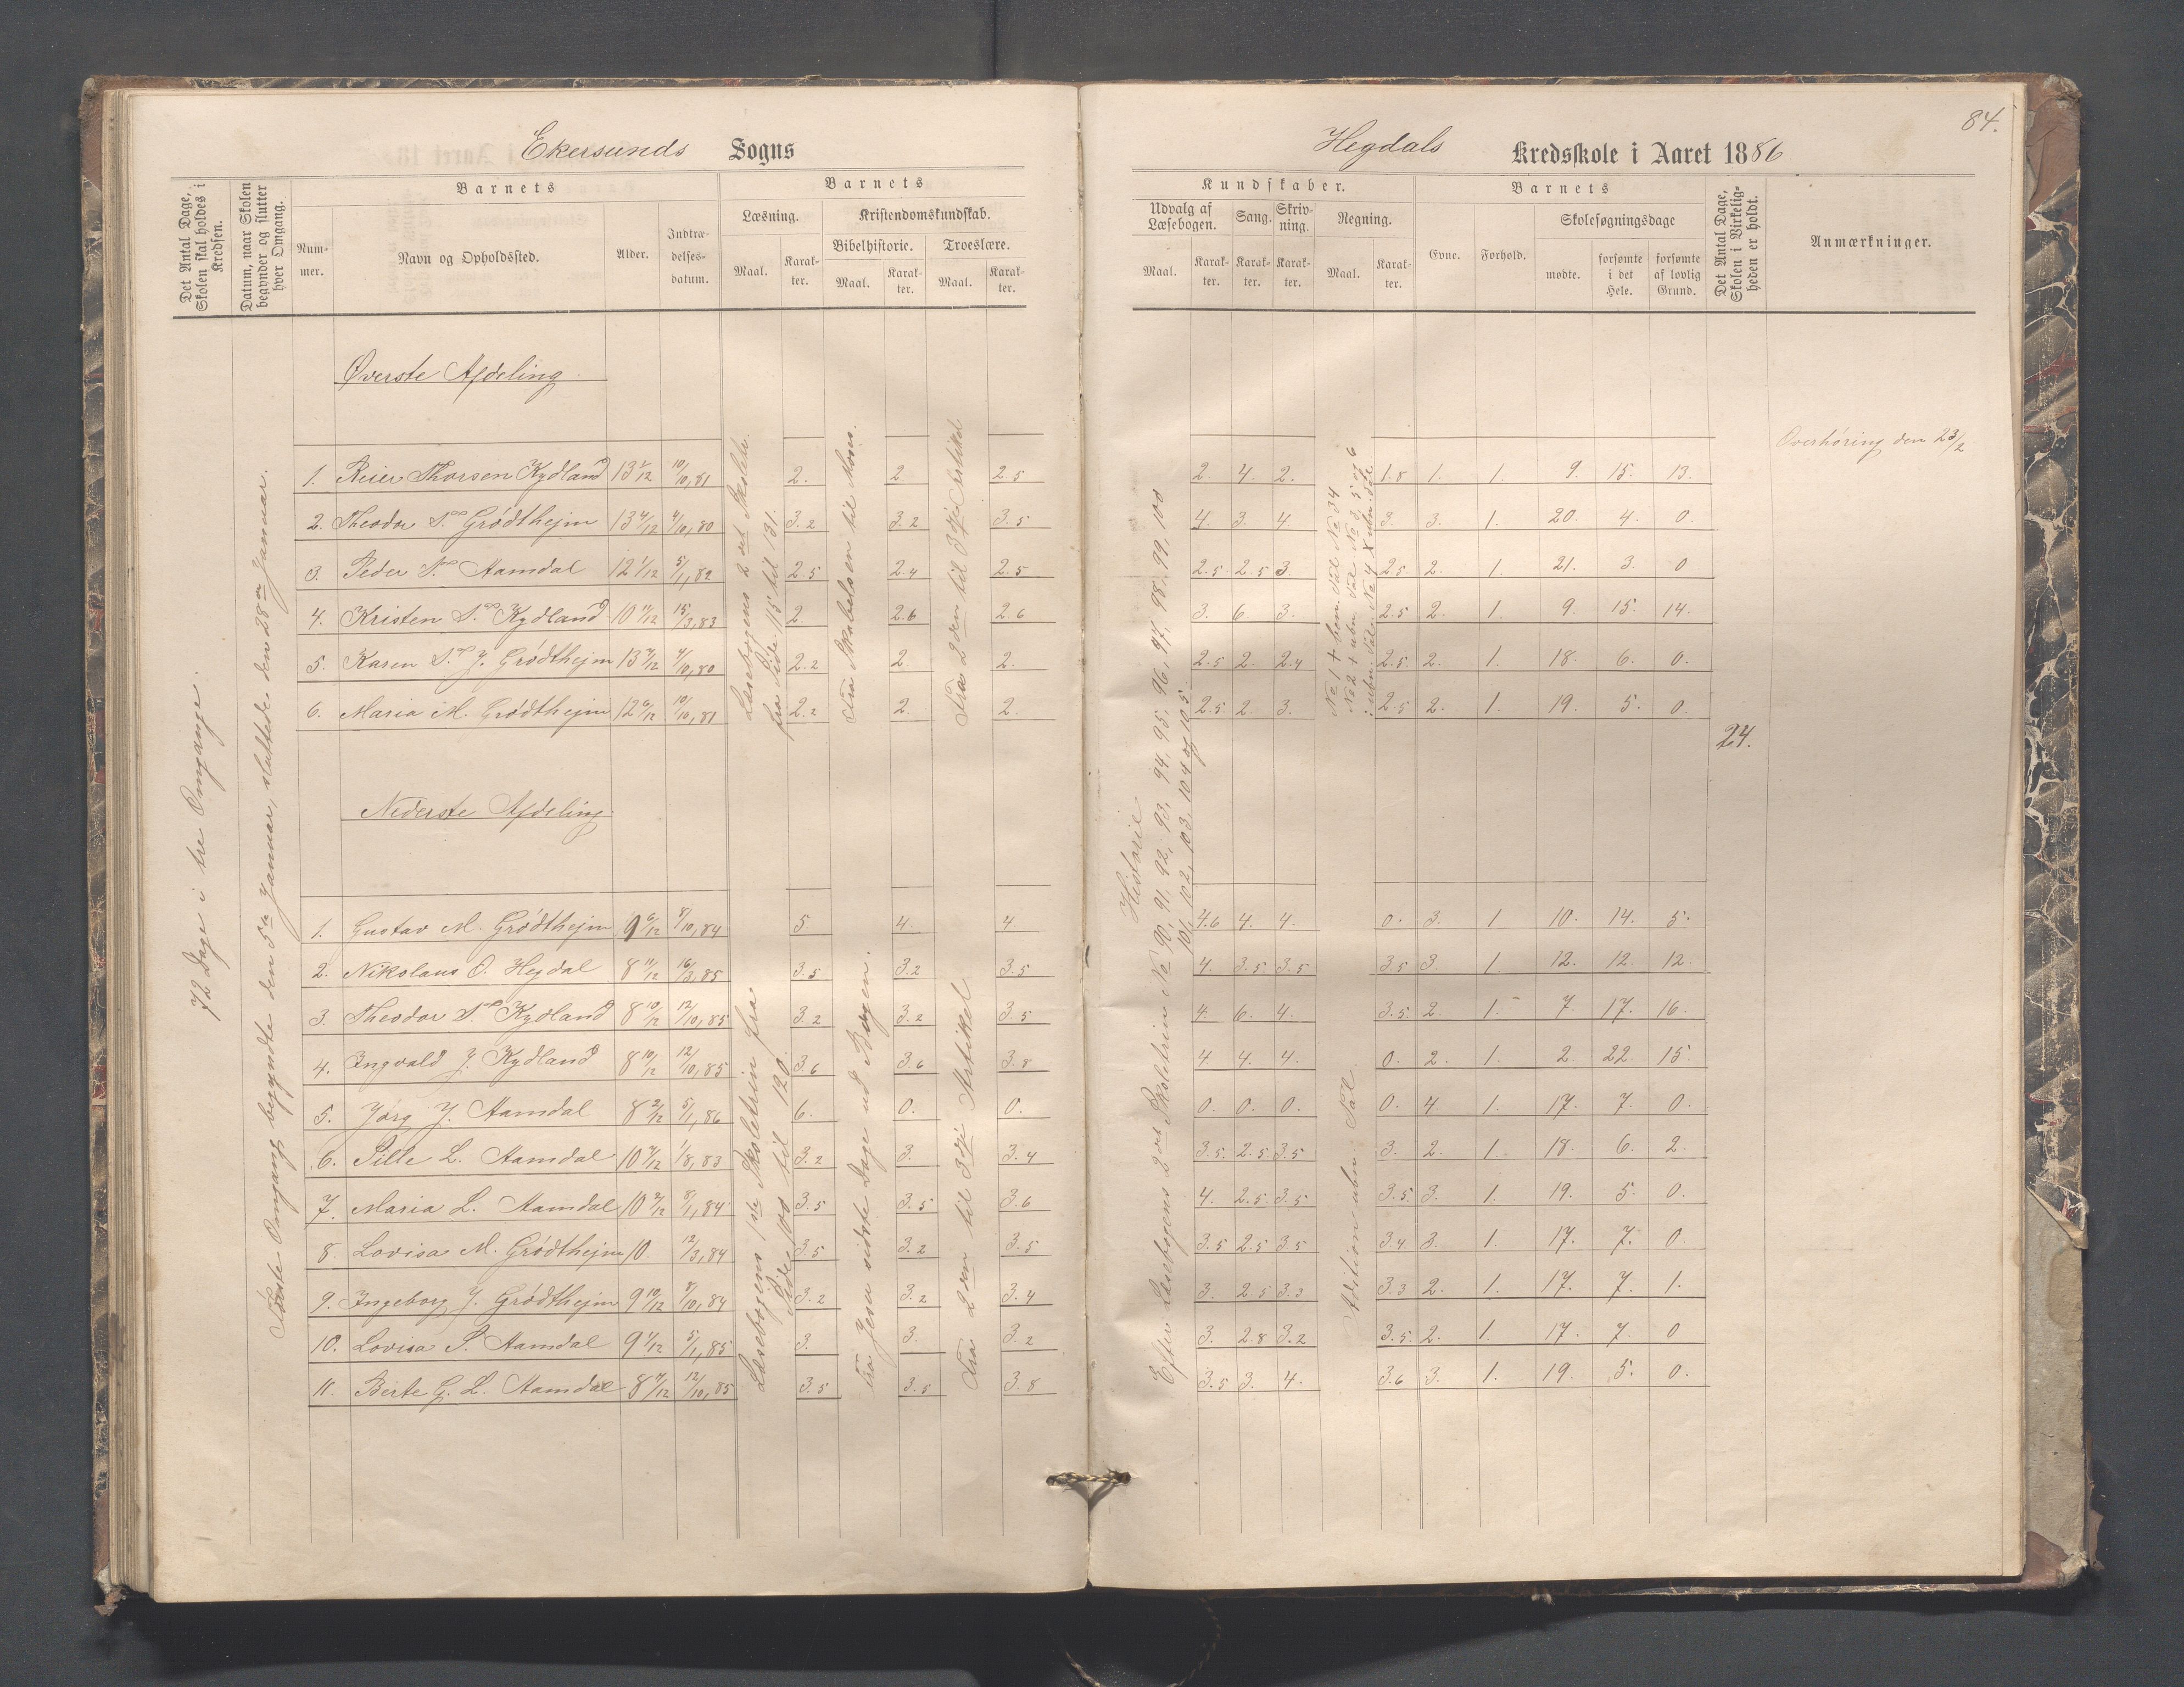 84.
Ekersunds Sogns
Hegdals Kredsskole i Aaret 1886
Det Antal Dage, Skolen skal holdes i Kredsen.
Datum, naar Skolen begynder og slutter hver Omgang.
Barnets
Nummer.
Navn og Opholdssted.
Alder.
Indtrædelsesdatum.
Barnets
Læsning.
Maal.
Karakter.
Kristendomskundskab.
Bibelhistorie.
Maal.
Karakter.
Troeslære.
Maal.
Karakter.
Kundskaber.
Udvalg af Læsebogen.
Maal.
Karakter.
Sang.
Karakter.
Skrivning.
Karakter.
Regning.
Maal.
Karakter.
Barnets
Evne.
Forhold.
Skolesøgningsdage
mødte.
forsømte i det Hele.
forsømte af lovlig Grund.
Det Antal Dage, Skolen i Virkeligheden er holdt.
Anmærkninger.
72 Dage i tre Omgange.
Første Omgang begyndte den 5te Januar, sluttede den 28de Januar.
Øverste Afdeling.
Overhøring den 23/2
1. Reier Thorsen Kydland 13 2/12 10/10, 81 2. 2. 2.5 2. 4. 2. 1.8 1. 1. 9. 15. 13.
2. Theodor Grödthejm 13 4/12 4/10, 80 3.2 3.2 3.5 4. 3. 4. 3. 3. 1. 20. 4. 0.
3. Peder Aamdal 12 1/12 5/1, 82 2.5 2.4 2.5 2.5 2.5 3. 2.5 2. 1. 21. 3. 0
4. Kristen Kydland 10 11/12 15/3, 83 2. 2.6 2.6 3. 6. 3. 2.5 2. 1. 9. 15. 14.
5. Karen J. Grödthejm 13 4/12 4/10, 80 2.2 2. 2. 2.5 2. 2.4 2.5 2. 1. 18. 6. 0.
6. Maria M. Grödthejm 12 6/12 10/10, 81 2.2 2. 2. 2.5 2. 3. 2.5 2. 1. 19. 5. 0.
Læsebogens 2det Skoletr.
fra Side 115 til 131.
Fra Skabelsen til Moses.
Fra 2den til 3die Artikel
No 1 + ben. Tal No 34
No 2 + ubn. Tal No 3, 5 og 6
: ubn. Tal. No 4 X ubn. Tal
24.
Nederste Afdeling.
1. Gustav M. Grödthejm 9 6/12 8/10, 84 5. 4. 4. 4.6 4. 4. 0. 3. 1 10. 14. 5.
2. Nikolaus O. Hegdal 8 11/12 16/3, 85 3.5 3.2 3.5 4. 3.5 3.5 3.5 3 1 12. 12. 12.
3. Theodor Kydland 8 10/12 12/10, 85 3.2 3.2 3.5 4. 6. 4. 3.5. 2. 1. 7. 17. 16.
4. Ingvald J. Kydland 8 10/12 12/10, 85 3.6 3.6 3.8 4 4. 4. 0. 2. 1. 2. 22. 15.
5. Jørg J. Aamdal 8 2/12 5/1, 86 6. 0. 0. 0. 0. 0. 0. 4. 1. 17. 7. 0.
6. Sille L. Aamdal 10 11/12 1/8, 83 3.2 3. 3.4 3.5. 2.5 3.5 3. 2. 1. 18. 6. 2.
7. Maria L. Aamdal 10 8/1, 84 3.5 3.5 3.6 4. 2.5 3.5 3.5 3. 1. 19. 5. 0.
8. Lovisa M. Grödthejm 10. 12/3, 84 3.5 3.2 3.5 3.5 2.5 3.5 3.4. 3. 1. 17. 7. 0.
9. Ingeborg J. Grödthejm 9 10/12 8/10, 84 3.2 3.2 3.4 3. 2.5 3.3 3.3 2. 1. 17. 7. 1.
10. Lovisa S. Aamdal 9 1/12 5/1, 85 3. 3. 3.2 3. 2.8 3.2 3.5. 2. 1. 17. 7. 0
11. Berte G. L. Aamdal 8 7/12 12/10, 85 3.5 3.5 3.8 3.5 3. 4. 3.6 3. 1. 19. 5. 0.
Læsebogens 1ste Skoletrin fra
Side 100 til 120.
Fra Jesu sidste Dage ud Bogen.
Fra 2den til 3die Artikel
Historie
Efter Læsebogens 2det Skoletrin No 90, 91, 92, 93, 94, 95, 96, 97, 98, 99, 100
101, 102, 103, 104 og 105.
Adition ubn. Tal.